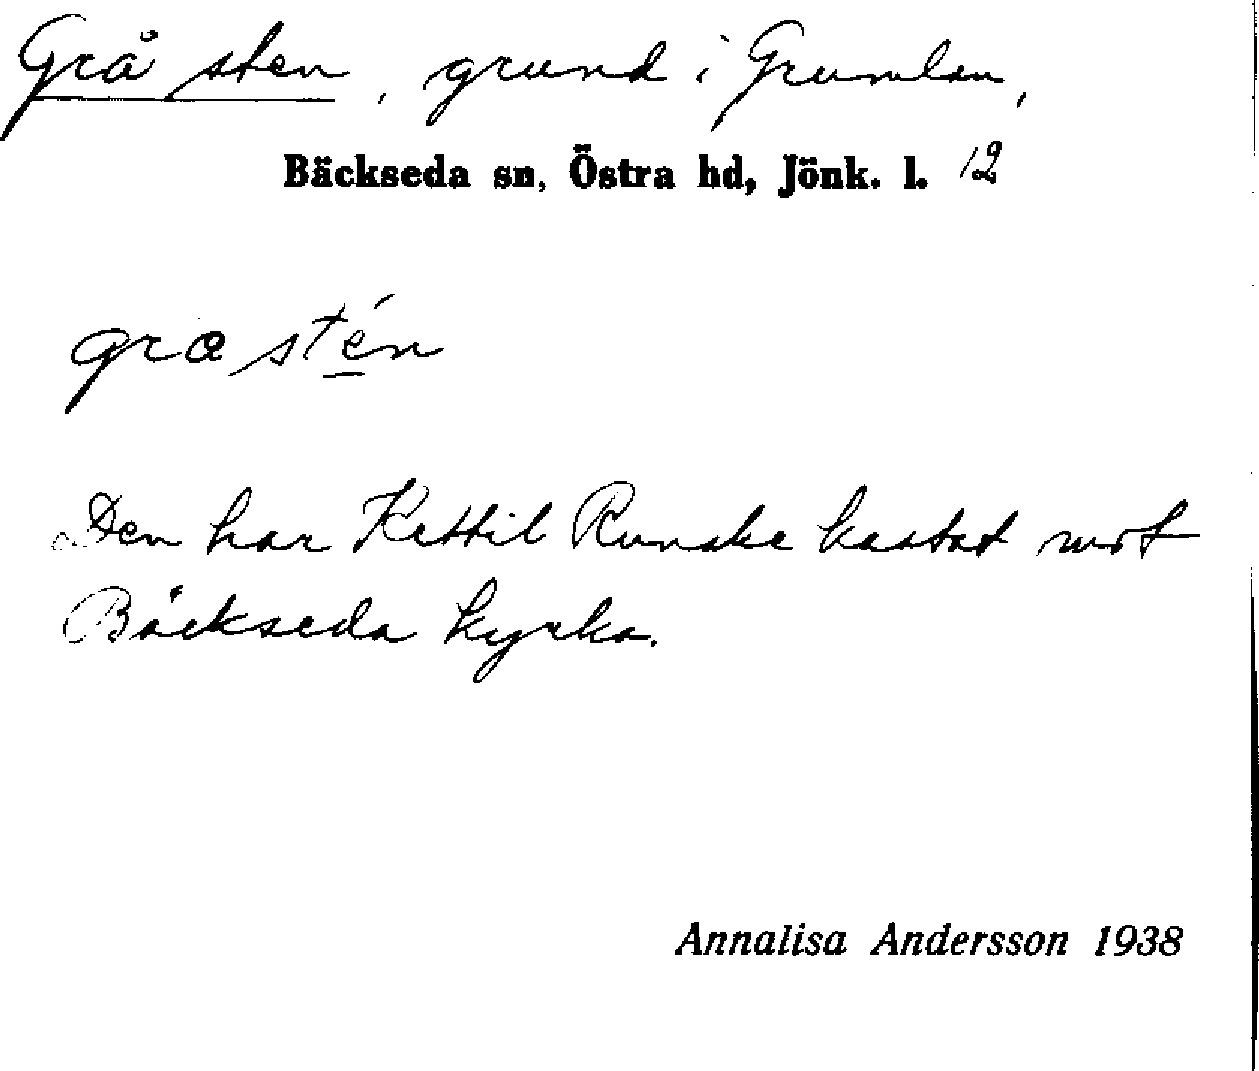 Grå sten, grund i Grumlan,
Bäckseda sn, Östra hd, Jönk. l. 12
græstén
Den har Kettil Runske kastat mot
Bäckseda kyrka.
Annalisa Andersson 1938